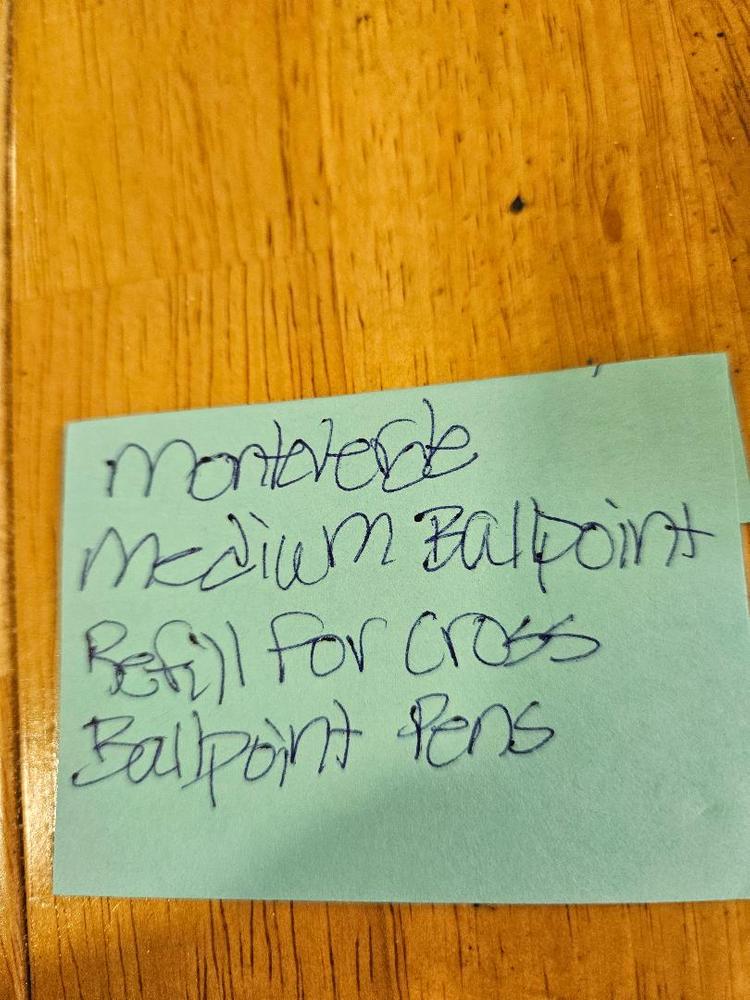 Monteverde
Medium Ballpoint
Refill For Cross
Ballpoint Pens